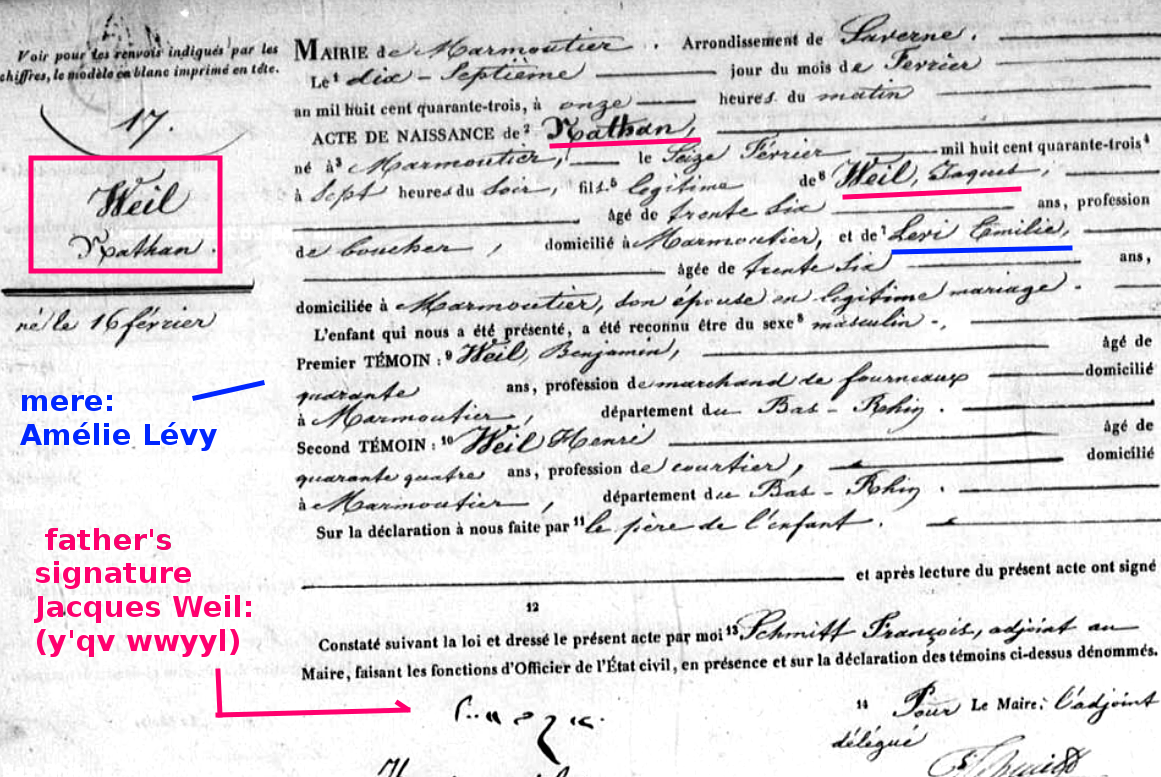 Voir pour les renvois indiqués par les
chiffres, le modèle en blanc imprimé en tête.
17.
Weil
Nathan.
né le 16 février
mere:
Amélie Lévy
father's
signature
Jacques Weil:
(y'qv wwyyl)
MAIRIE de Marmoutier. Arrondissement de Saverne.
Le¹ dix-Septième jour du mois de Fevrier
an mil huit cent quarante-trois, à onze heures du matin
ACTE DE NAISSANCE de² Nathan,
né à³ Marmoutier, le Seize Février mil huit cent quarante-trois⁴
à Sept heures du Soir, fils⁵ légitime de⁶ Weil, Jaques,
âgé de trente Six ans, profession
de boucher, domicilié à Marmoutier, et de⁷ Levi Emilie,
âgée de trente Six ans,
domiciliée à Marmoutier, son épouse en légitime mariage.
L'enfant qui nous a été présenté, a été reconnu être du sexe⁸ masculin-,
Premier TÉMOIN :⁹ Weil, Benjamin, âgé de
quarante ans, profession de marchand de fourneaux domicilié
à Marmoutier, département du Bas-Rhin.
Second TÉMOIN :¹⁰ Weil Henri âgé de
quarante quatre ans, profession de courtier, domicilié
à Marmoutier, département du Bas-Rhin.
Sur la déclaration à nous faite par¹¹ le père de l'enfant.
et après lecture du présent acte ont signé
12
Constaté suivant la loi et dressé le présent acte par moi¹³ Schmitt François, adjoint au
Maire, faisant les fonctions d'Officier de l'État civil, en présence et sur la déclaration des témoins ci-dessus dénommés.
¹⁴ Pour Le Maire: l'adjoint
délégué